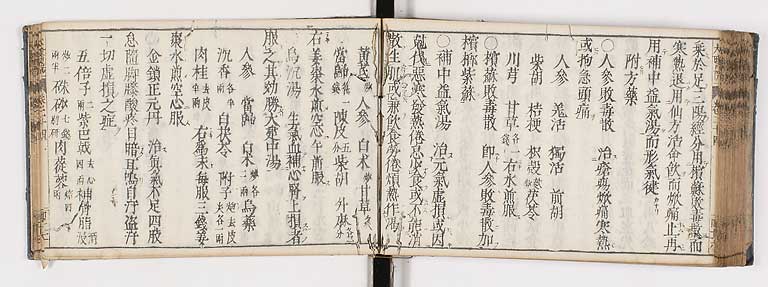 乘於足三陽經分用擯蘇敗毒散而
寒熱退用仙方活命飲而焮痛止再
用補中益氣湯而形氣健
附方藥
○人參敗毒散 治瘡瘍焮痛寒熱
或拘急頭痛
人參 羗活 獨活 前胡
柴胡 桔梗 枳殼 茯苓
川芎 甘草 右水煎服
○擯蘇敗毒散 即人參敗毒散加
擯榔紫蘇
○補中益氣湯 治元氣虛損或因
尅伐惡寒發熱倦怠食少或不能消
散生肌或兼飲食勞倦煩熱作渴
黃芪 人參 白术 甘草
當歸 陳皮 柴胡 升麻
右姜棗水煎空心午前服
烏沉湯 生氣血補心腎上損者
服之其効勝大建中湯
人參 當歸 白术 烏藥
沉香 白茯苓 附子
肉桂 去皮 右爲末每服三錢姜
棗水煎空心服
金鎖正元丹 治眞氣不足四肢
怠隨脚膝酸疼目暗耳鳴自汗盜汗
一切虛損之症
五倍子 紫巴戟 補骨脂
硃砂 肉蓯蓉